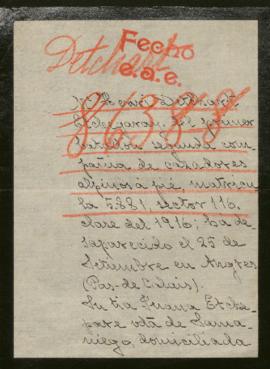 Detchart
Fecho
e.a.e.
86388
Detchart
Etchegaray, del primer
batallon segunda com-
pañia de cazadores
alpinos á pié, matricu
la 5881, sector 116,
clase del 1916; há de-
saparecido el 25 de
Setiembre en Angres
(Pas-de-Calais).
Su tia Juana Etche
pare vda de Sama-
niego domiciliada